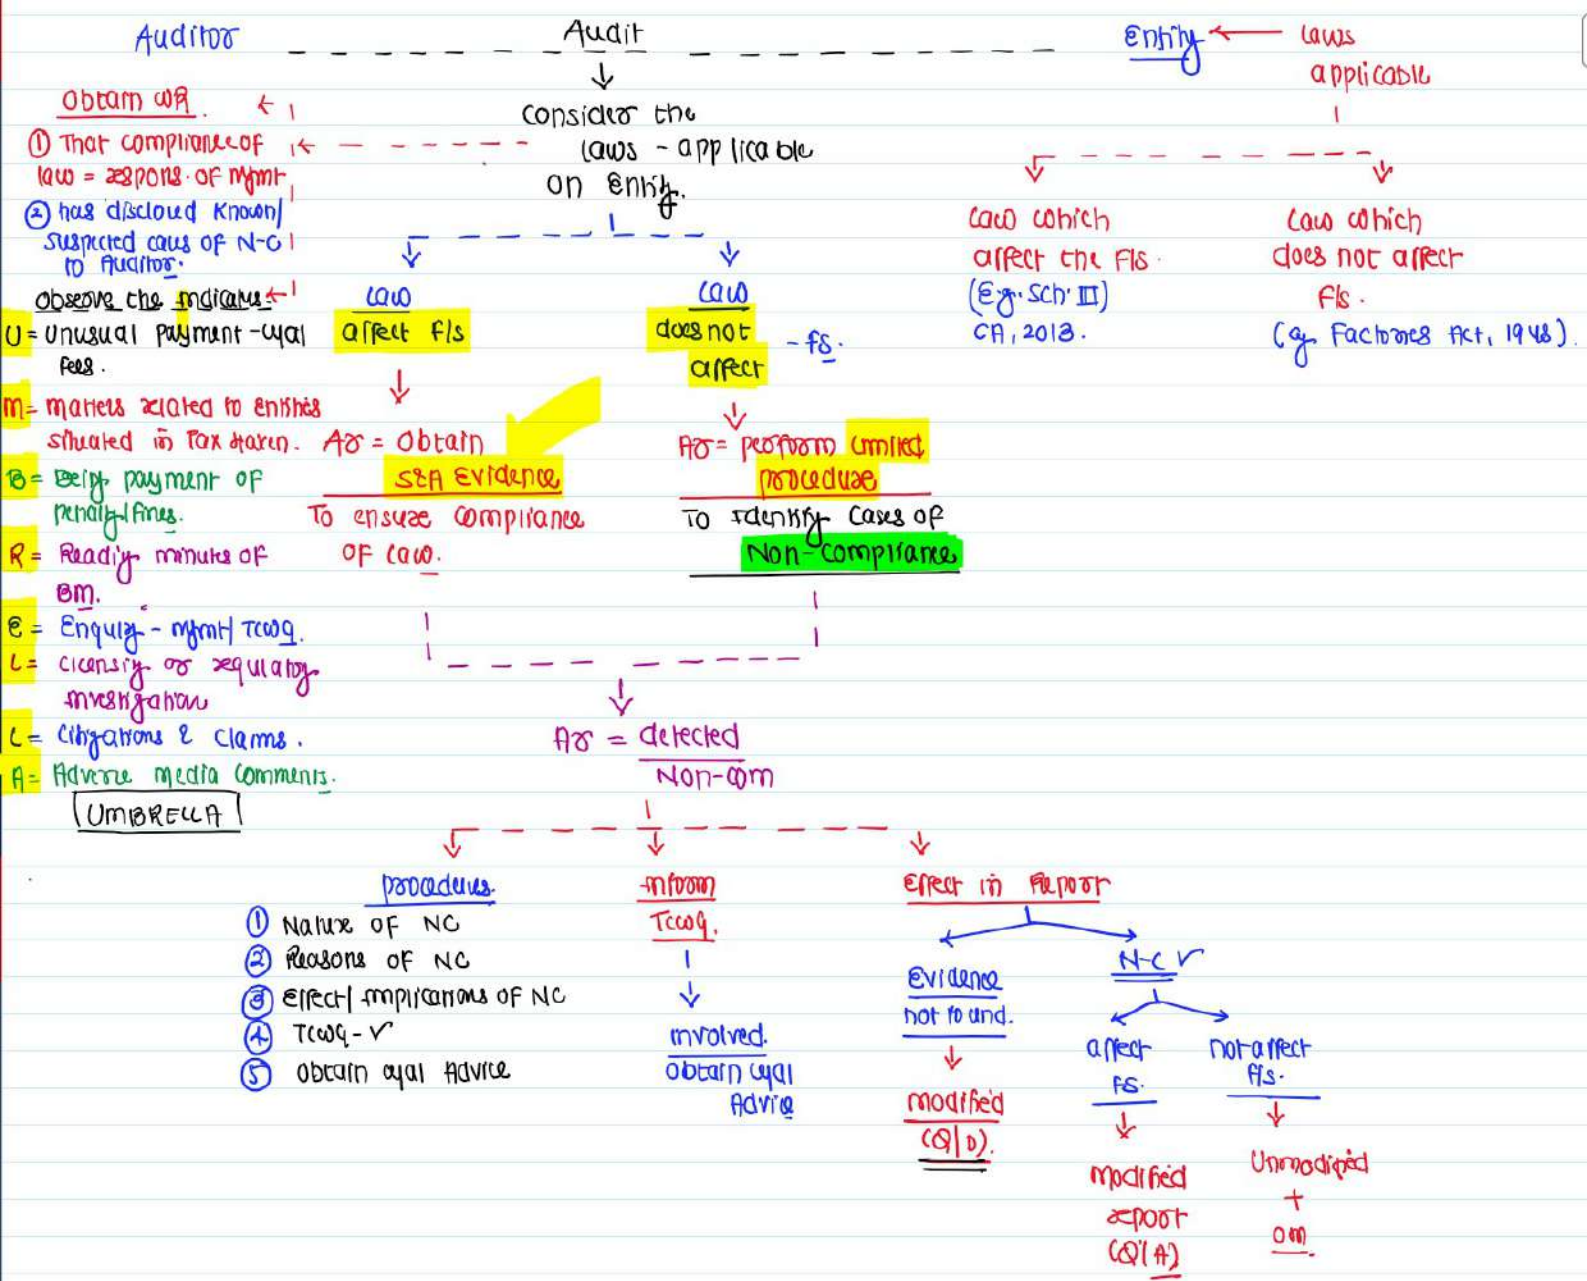 Auditor
Audit
Entity
laws
applicable
Obtain WR.
① That compliance of
law = respons. of mgmt
② has disclosed known/
suspected cases of N-C
to Auditor.
Observe the indicators:
U = Unusual payment - legal
fees.
M = matters related to entities
situated in Tax Haven.
B = Being payment of
penalty/fines.
R = Reading minutes of
BM.
E = Enquiry - mgmt/TCWG.
L = Licensing or regulatory
investigation
L = Litigations & claims.
A = Adverse media comments.
UMBRELLA
consider the
laws - applicable
on entity.
Law
affect F/s
Ar = Obtain
S&A Evidence
To ensure compliance
of law.
Law
does not
affect
- fs.
Ar = perform limited
procedure
To Identify cases of
Non-compliance
Law which
affect the F/s.
(Eg. Sch. III)
CA, 2013.
Law which
does not affect
F/s.
(eg. Factories Act, 1948).
Ar = detected
Non-com
procedures
① Nature of NC
② Reasons of NC
③ Effect/Implications of NC
④ TCWG - ✓
⑤ Obtain legal Advice
Inform
TCWG.
involved.
Obtain legal
Advice
Effect in Report
Evidence
not found.
modified
(Q/D).
N-C ✓
affect
FS.
modified
report
(Q/A)
not affect
F/s.
Unmodified
+
OM.